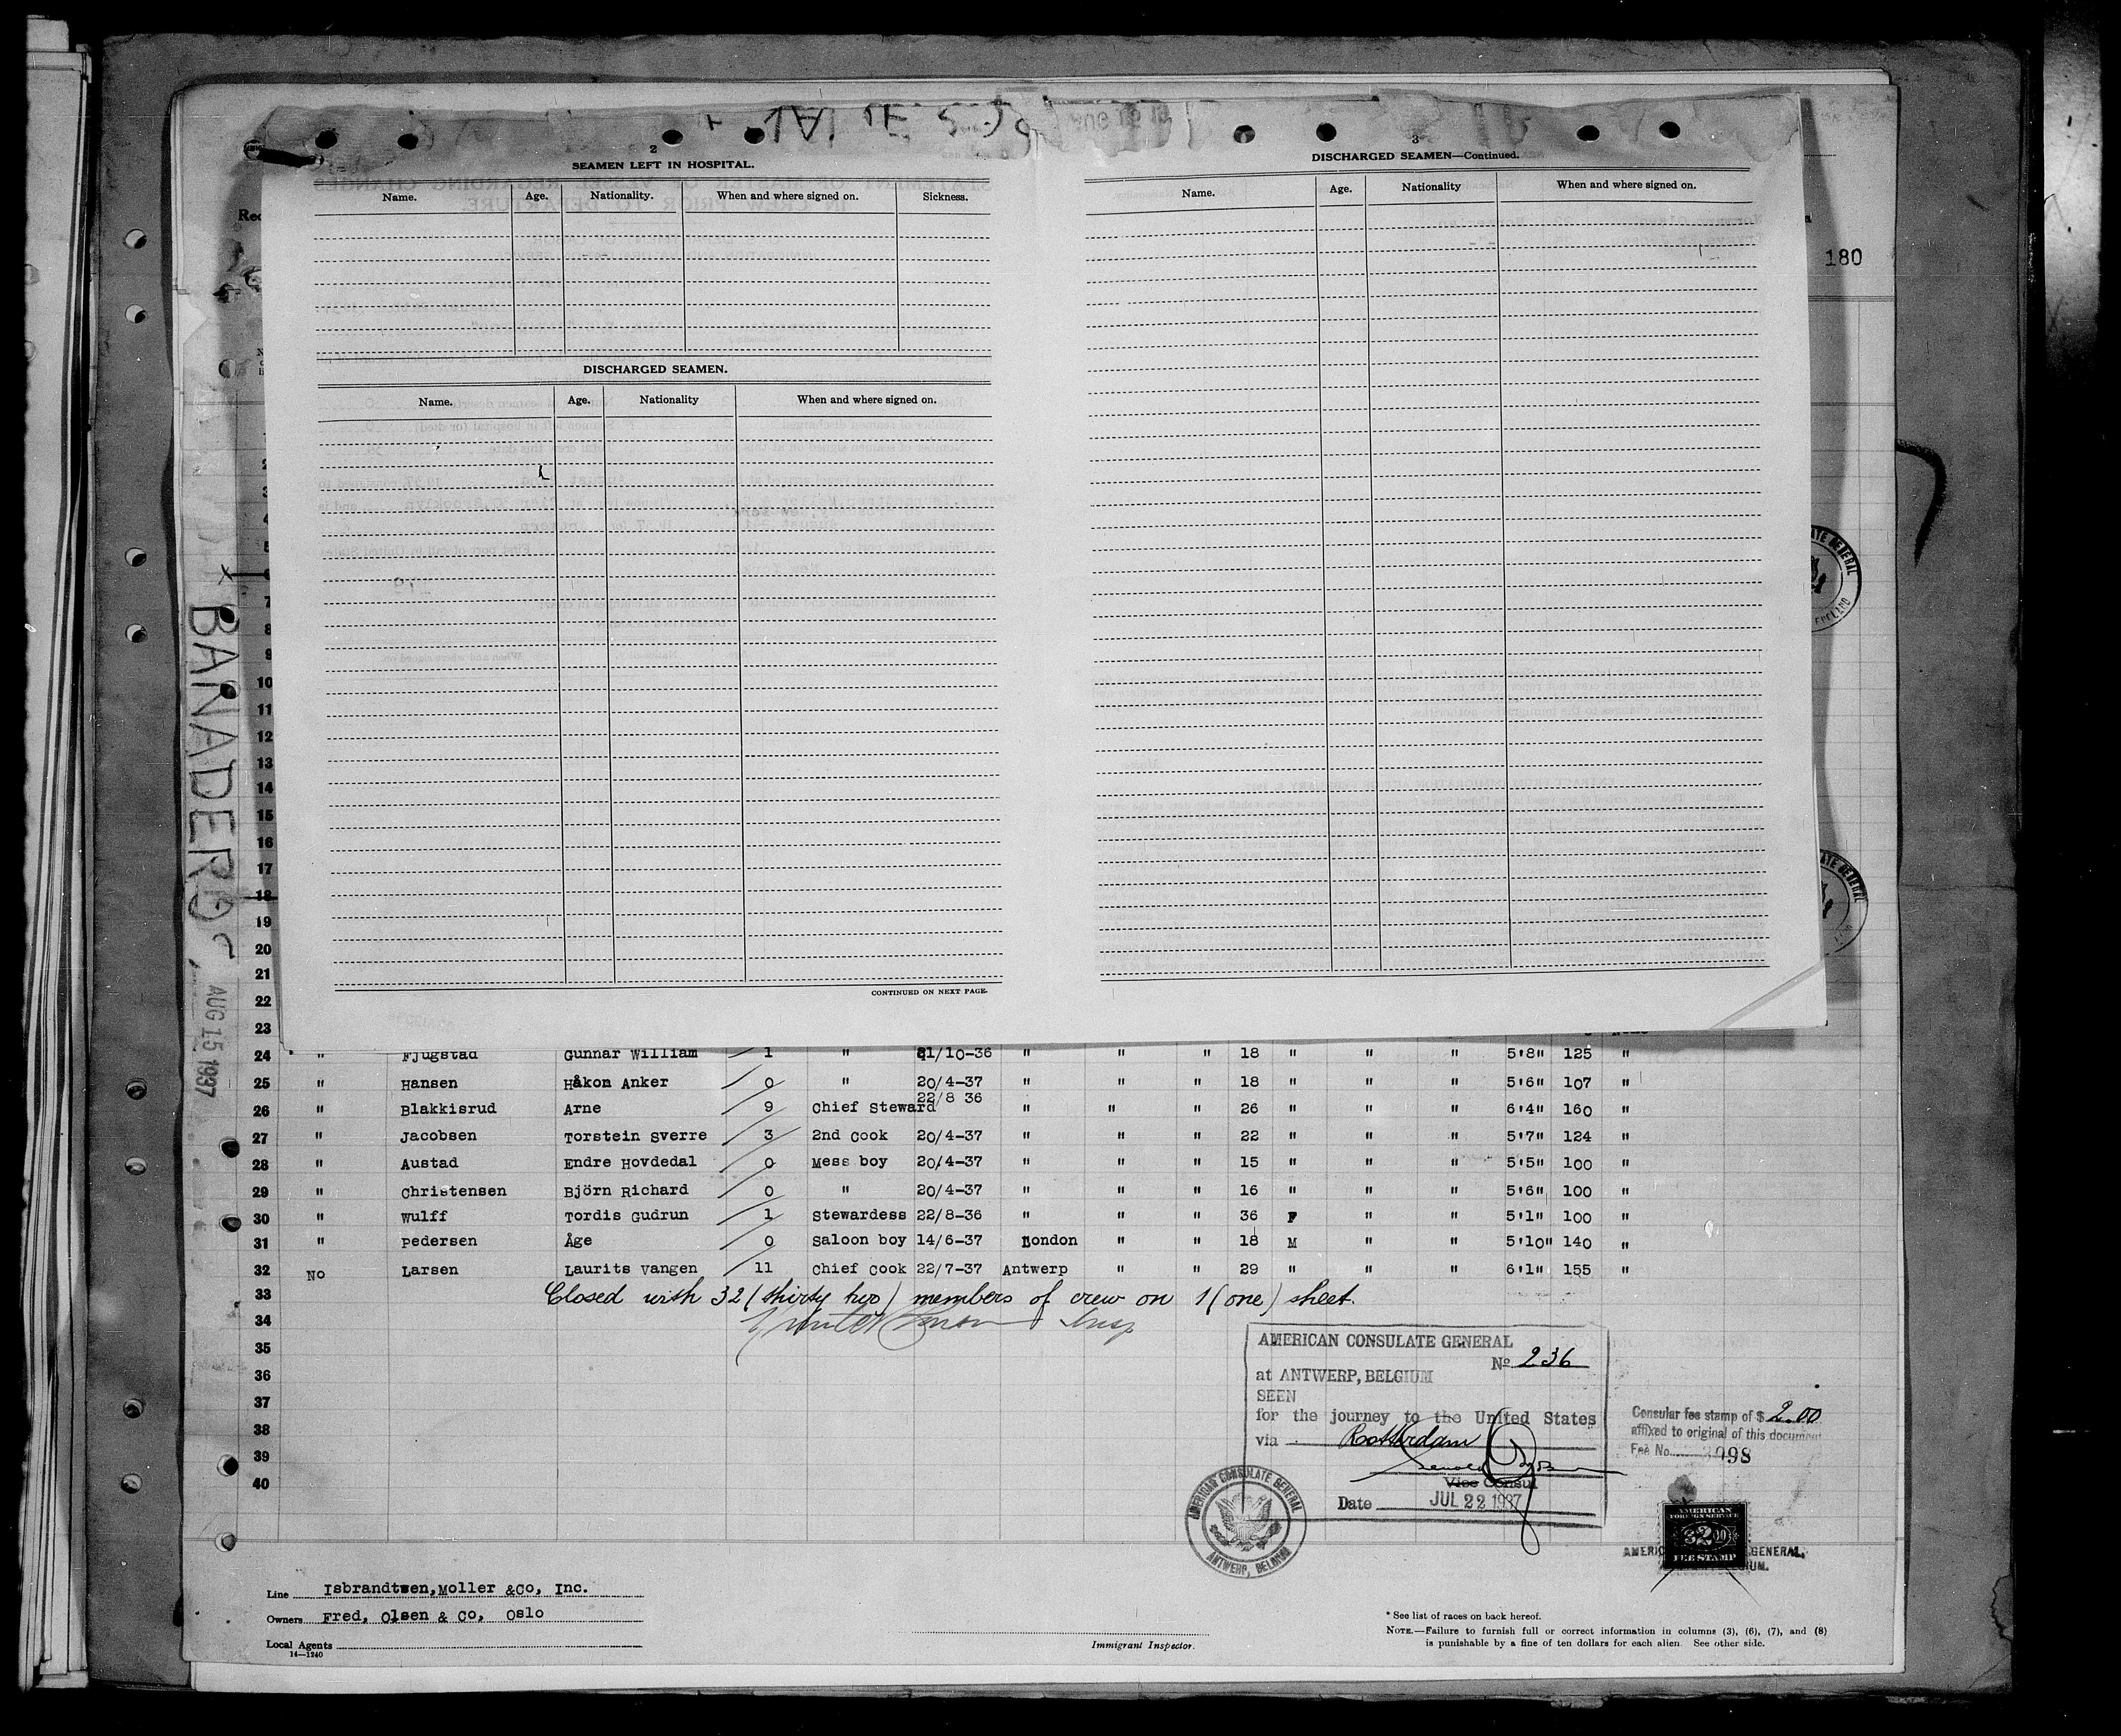 2
SEAMEN LEFT IN HOSPITAL.
Name. Age. Nationality. When and where signed on. Sickness.
DISCHARGED SEAMEN.
Name. Age. Nationality When and where signed on.
CONTINUED ON NEXT PAGE.
3
DISCHARGED SEAMEN—Continued.
Name. Age. Nationality When and where signed on.
180
BANADEROS
AUG 15 1937
2
3
4
5
6
7
8
9
10
11
12
13
14
15
16
17
18
19
20
21
22
23
24 " Fjugstad Gunnar William 1 " 21/10-36 " " " 18 " " " 5'8" 125 "
25 " Hansen Håkon Anker 0 " 20/4-37 " " " 18 " " " 5'6" 107 "
26 " Blakkisrud Arne 9 Chief Steward 22/8 36 " " " 26 " " " 6'4" 160 "
27 " Jacobsen Torstein Sverre 3 2nd Cook 20/4-37 " " " 22 " " " 5'7" 124 "
28 " Austad Endre Hovdedal 0 Mess boy 20/4-37 " " " 15 " " " 5'5" 100 "
29 " Christensen Björn Richard 0 " 20/4-37 " " " 16 " " " 5'6" 100 "
30 " Wulff Tordis Gudrun 1 Stewardess 22/8-36 " " " 36 F " " 5'1" 100 "
31 " Pedersen Åge 0 Saloon boy 14/6-37 London " " 18 M " " 5'10" 140 "
32 No Larsen Laurits Vangen 11 Chief Cook 22/7-37 Antwerp " " 29 " " " 6'1" 155 "
33 Closed with 32 (thirty two) members of crew on 1 (one) sheet.
34
35
36
37
38
39
40
AMERICAN CONSULATE GENERAL
No 236
at ANTWERP, BELGIUM
SEEN
for the journey to the United States
via Rotterdam
Vice Consul
Date JUL 22 1937
AMERICAN CONSULATE GENERAL
ANTWERP, BELGIUM
Consular fee stamp of $ 2.00
affixed to original of this document
Fee No. 3098
AMERICAN
FOREIGN SERVICE
$2.00
FEE STAMP
GENERAL,
Line Isbrandtsen, Moller & Co, Inc.
Owners Fred, Olsen & Co, Oslo
Local Agents
14—1240
Immigrant Inspector.
* See list of races on back hereof.
NOTE.—Failure to furnish full or correct information in columns (3), (6), (7), and (8)
is punishable by a fine of ten dollars for each alien. See other side.